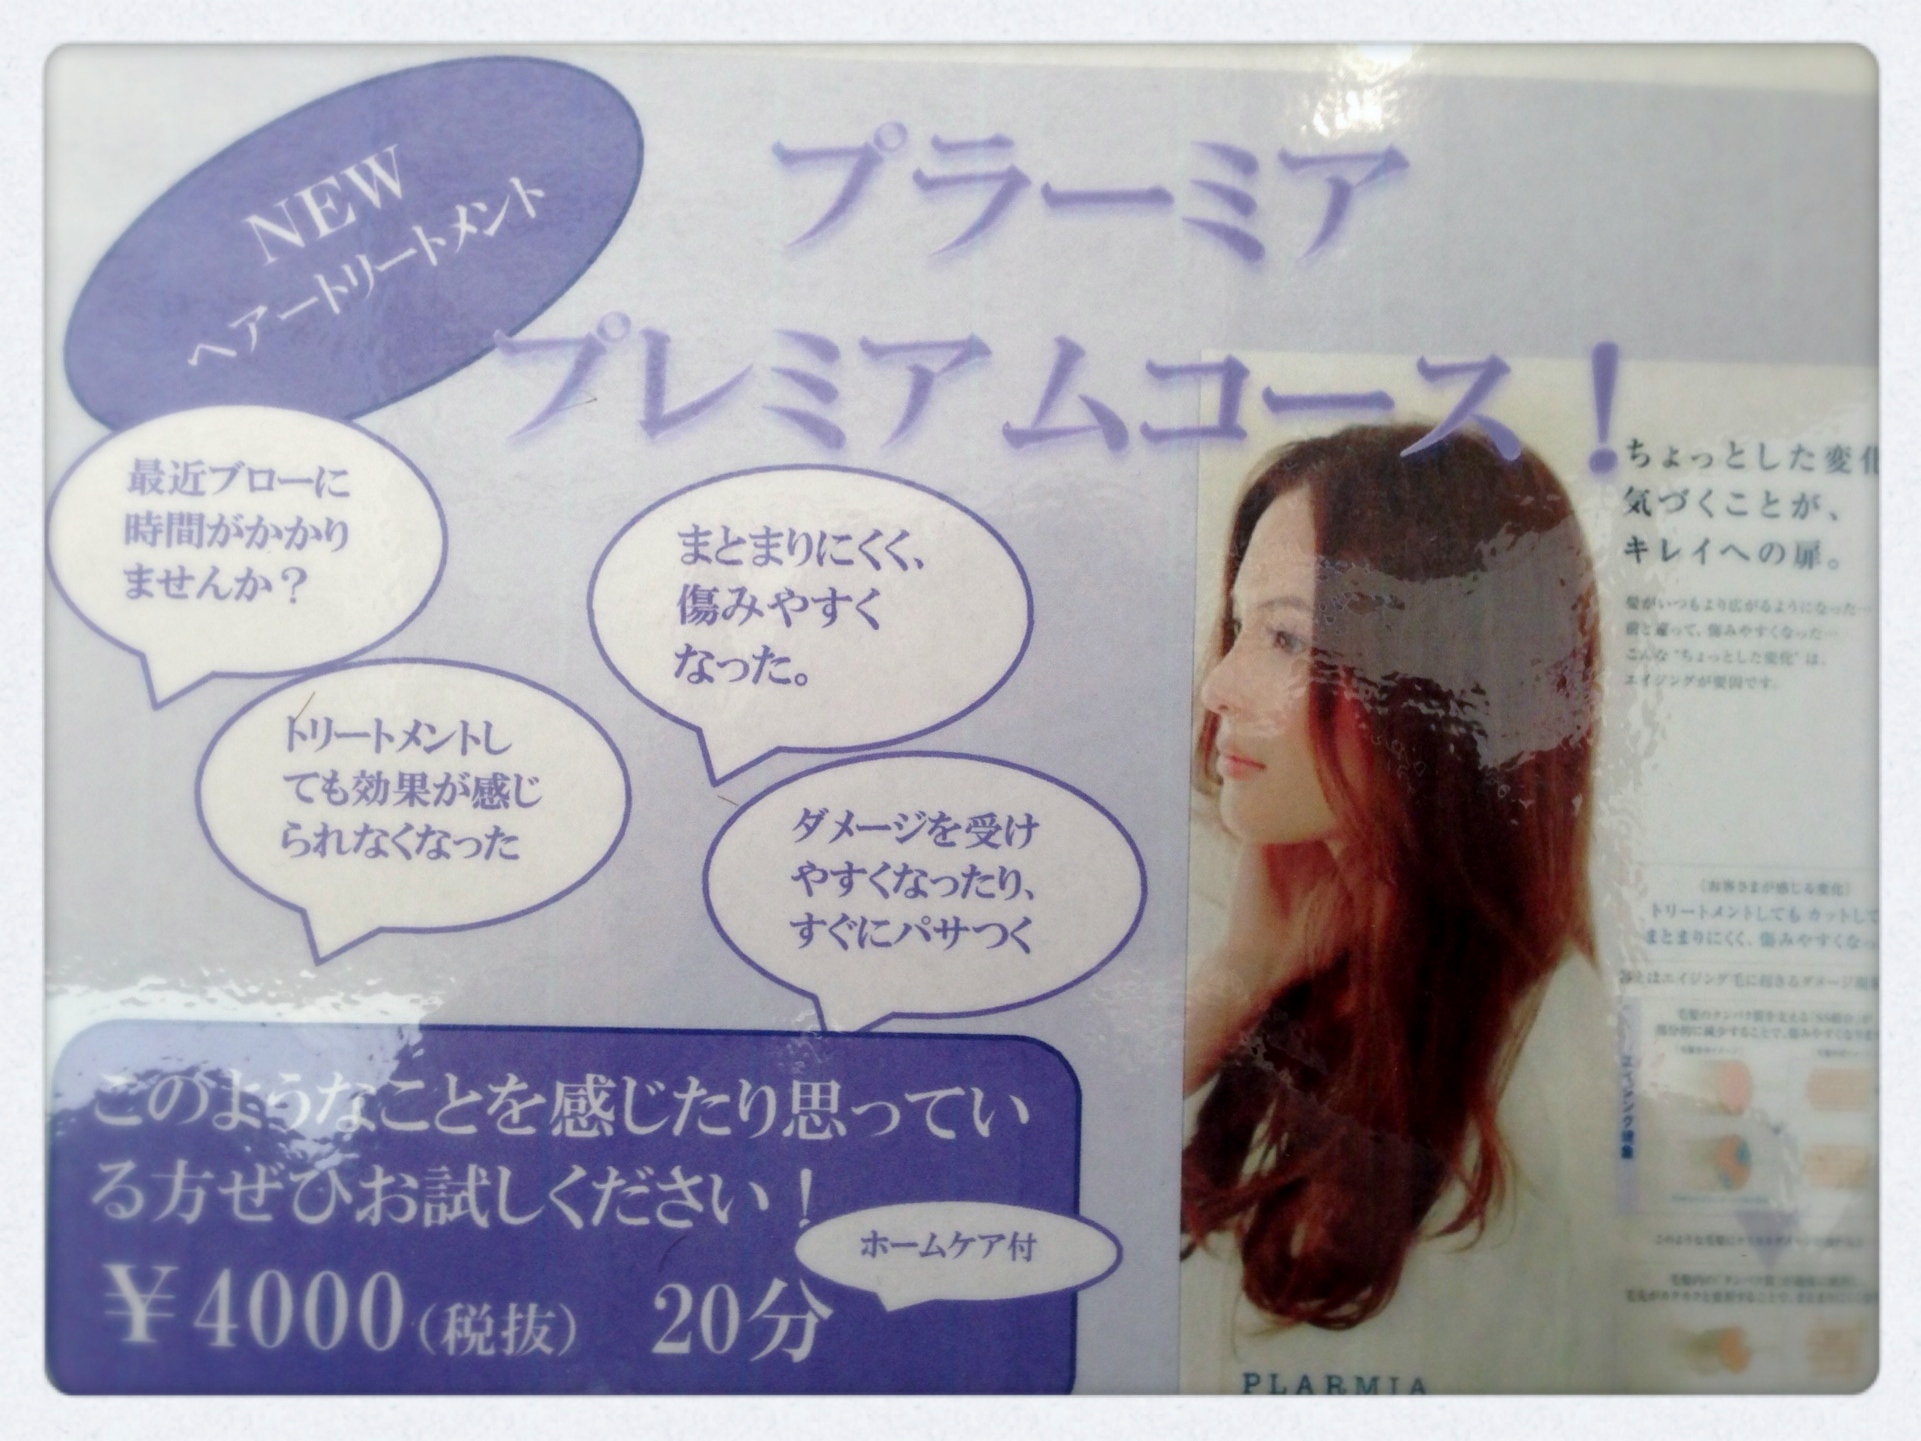 NEW
ヘアートリートメント
プラーミア
プレミアムコース！
最近ブローに
時間がかかり
ませんか？
まとまりにくく、
傷みやすく
なった。
トリートメントし
ても効果が感じ
られなくなった
ダメージを受け
やすくなったり、
すぐにパサつく
このようなことを感じたり思ってい
る方ぜひお試しください！
ホームケア付
￥4000（税抜）　20分
ちょっとした変化
気づくことが、
キレイへの扉。
髪がいつもより広がるようになった…
前と違って、傷みやすくなった…
こんな"ちょっとした変化"は、
エイジングが要因です。
［お客さまが感じる変化］
トリートメントしても カットして
まとまりにくく、傷みやすくなっ
PLARMIA